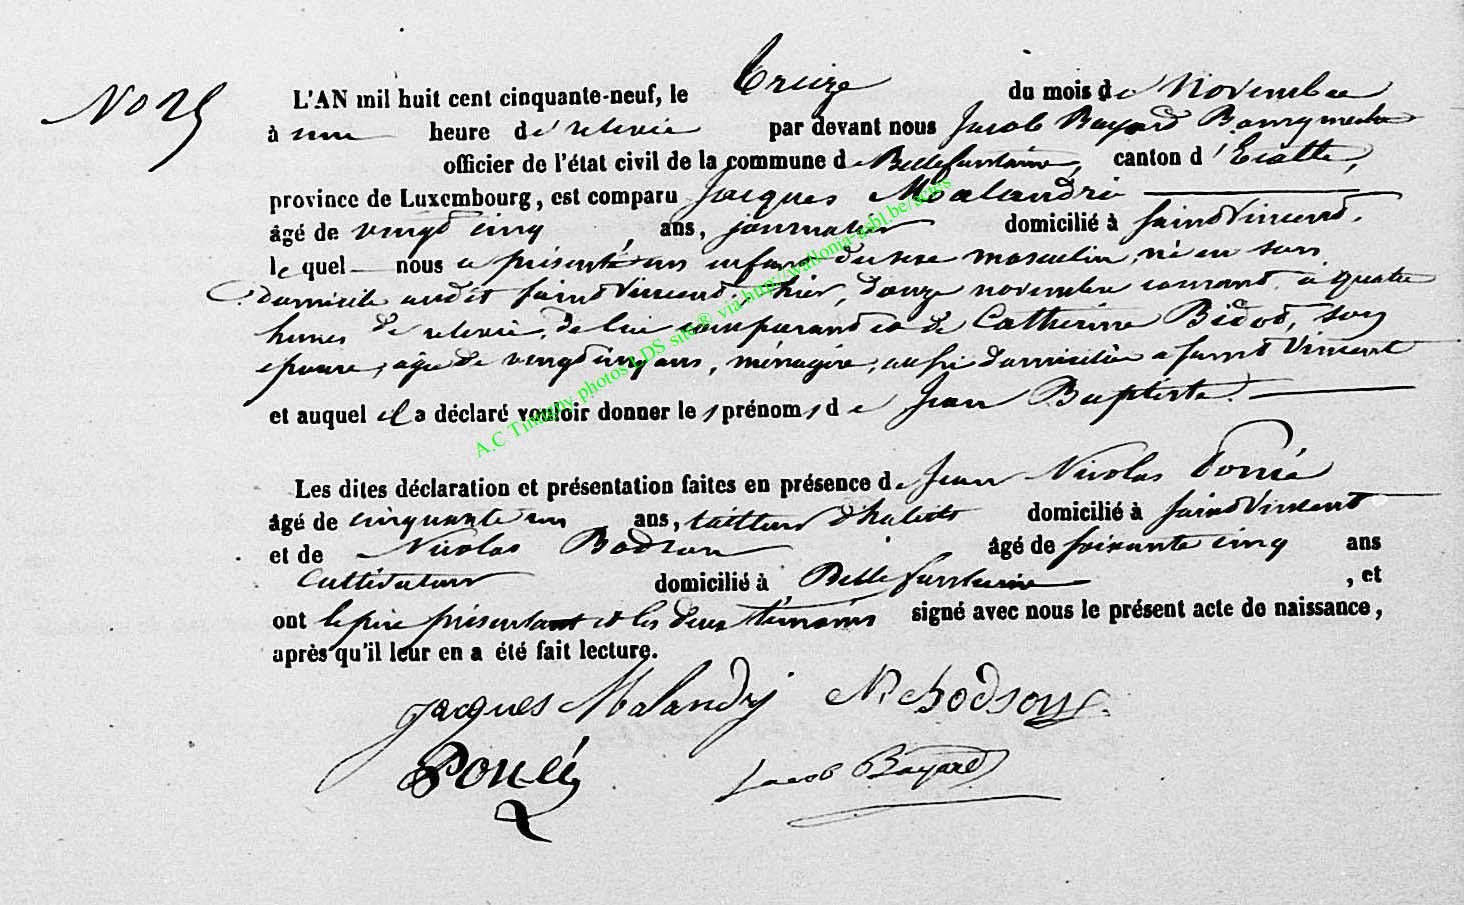 No 25
L'AN mil huit cent cinquante-neuf, le treize du mois de Novembre
à une heure de relevée par devant nous Jacob Bayard Bourgmestre
officier de l'état civil de la commune de Bellefontaine, canton d'Etalle,
province de Luxembourg, est comparu Jacques Malandri
âgé de vingt cinq ans, journalier domicilié à Saint Vincent,
le quel nous a présenté un enfant du sexe masculin, né en son
domicile audit Saint Vincent, hier, douze novembre courant, à quatre
heures de relevée, de lui comparant et de Catherine Bidot, son
épouse, agée de vingt cinq ans, ménagère, aussi domiciliée a Saint Vincent
et auquel il a déclaré vouloir donner les prénoms de Jean Baptiste.
Les dites déclaration et présentation faites en présence de Jean Nicolas Poncé
âgé de cinquante un ans, tailleur d'habits domicilié à Saint Vincent
et de Nicolas Bodson âgé de soixante cinq ans
Cultivateur domicilié à Bellefontaine, et
ont le père présentant et les deux témoins signé avec nous le présent acte de naissance,
après qu'il leur en a été fait lecture.
Jacques Malandry N. Bodson
Poncé Jacob Bayard
A.C Tintigny photos LDS site® via http://wallonia-asbl.be/actes